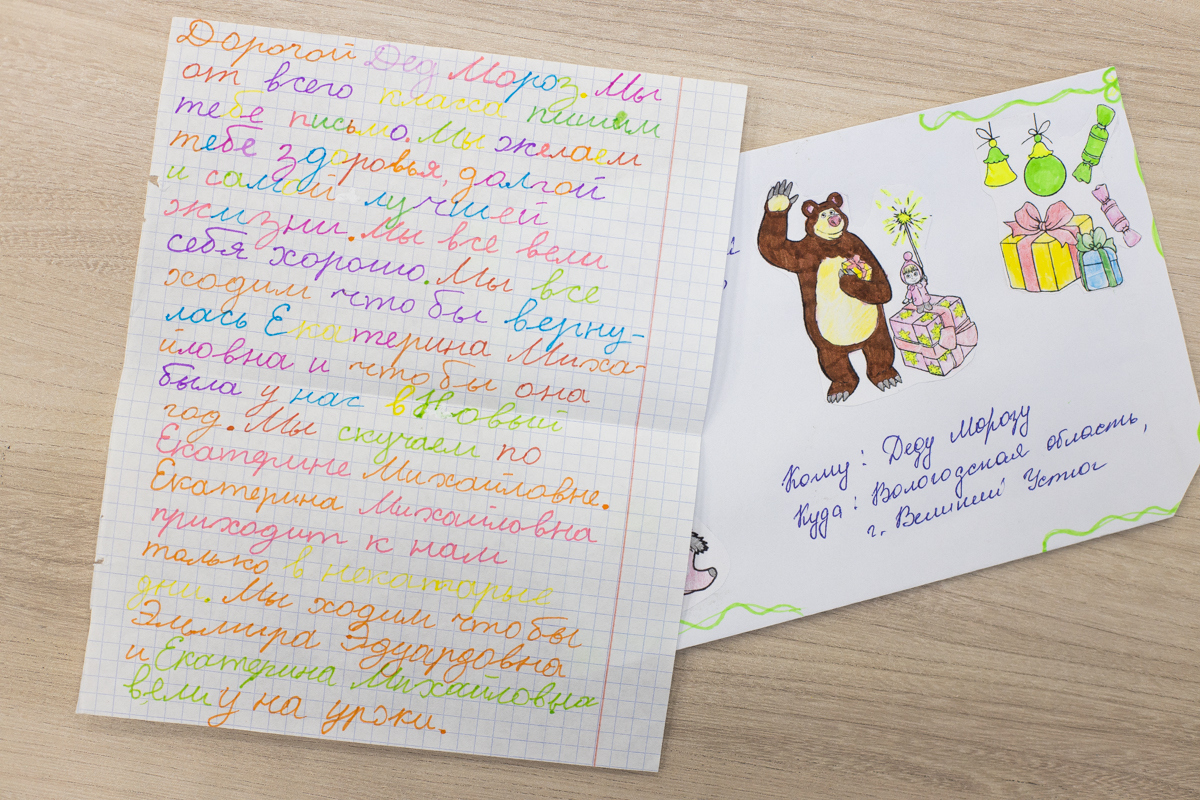 Дорогой Дед Мороз. Мы
от всего класса пишем
тебе письмо. Мы желаем
тебе здоровья, долгой
и самой лучшей
жизни. Мы все вели
себя хорошо. Мы все
ходим что бы верну-
лась Екатерина Миха-
йловна и что бы она
была у нас в Новый
год. Мы скучаем по
Екатерине Михайловне.
Екатерина Михайловна
приходит к нам
только в некатарые
дни. Мы ходим что бы
Эльмира Эдуардовна
и Екатерина Михайловна
вели у нас уроки.
Кому: Деду Морозу
Куда: Вологодская область,
г. Великий Устюг